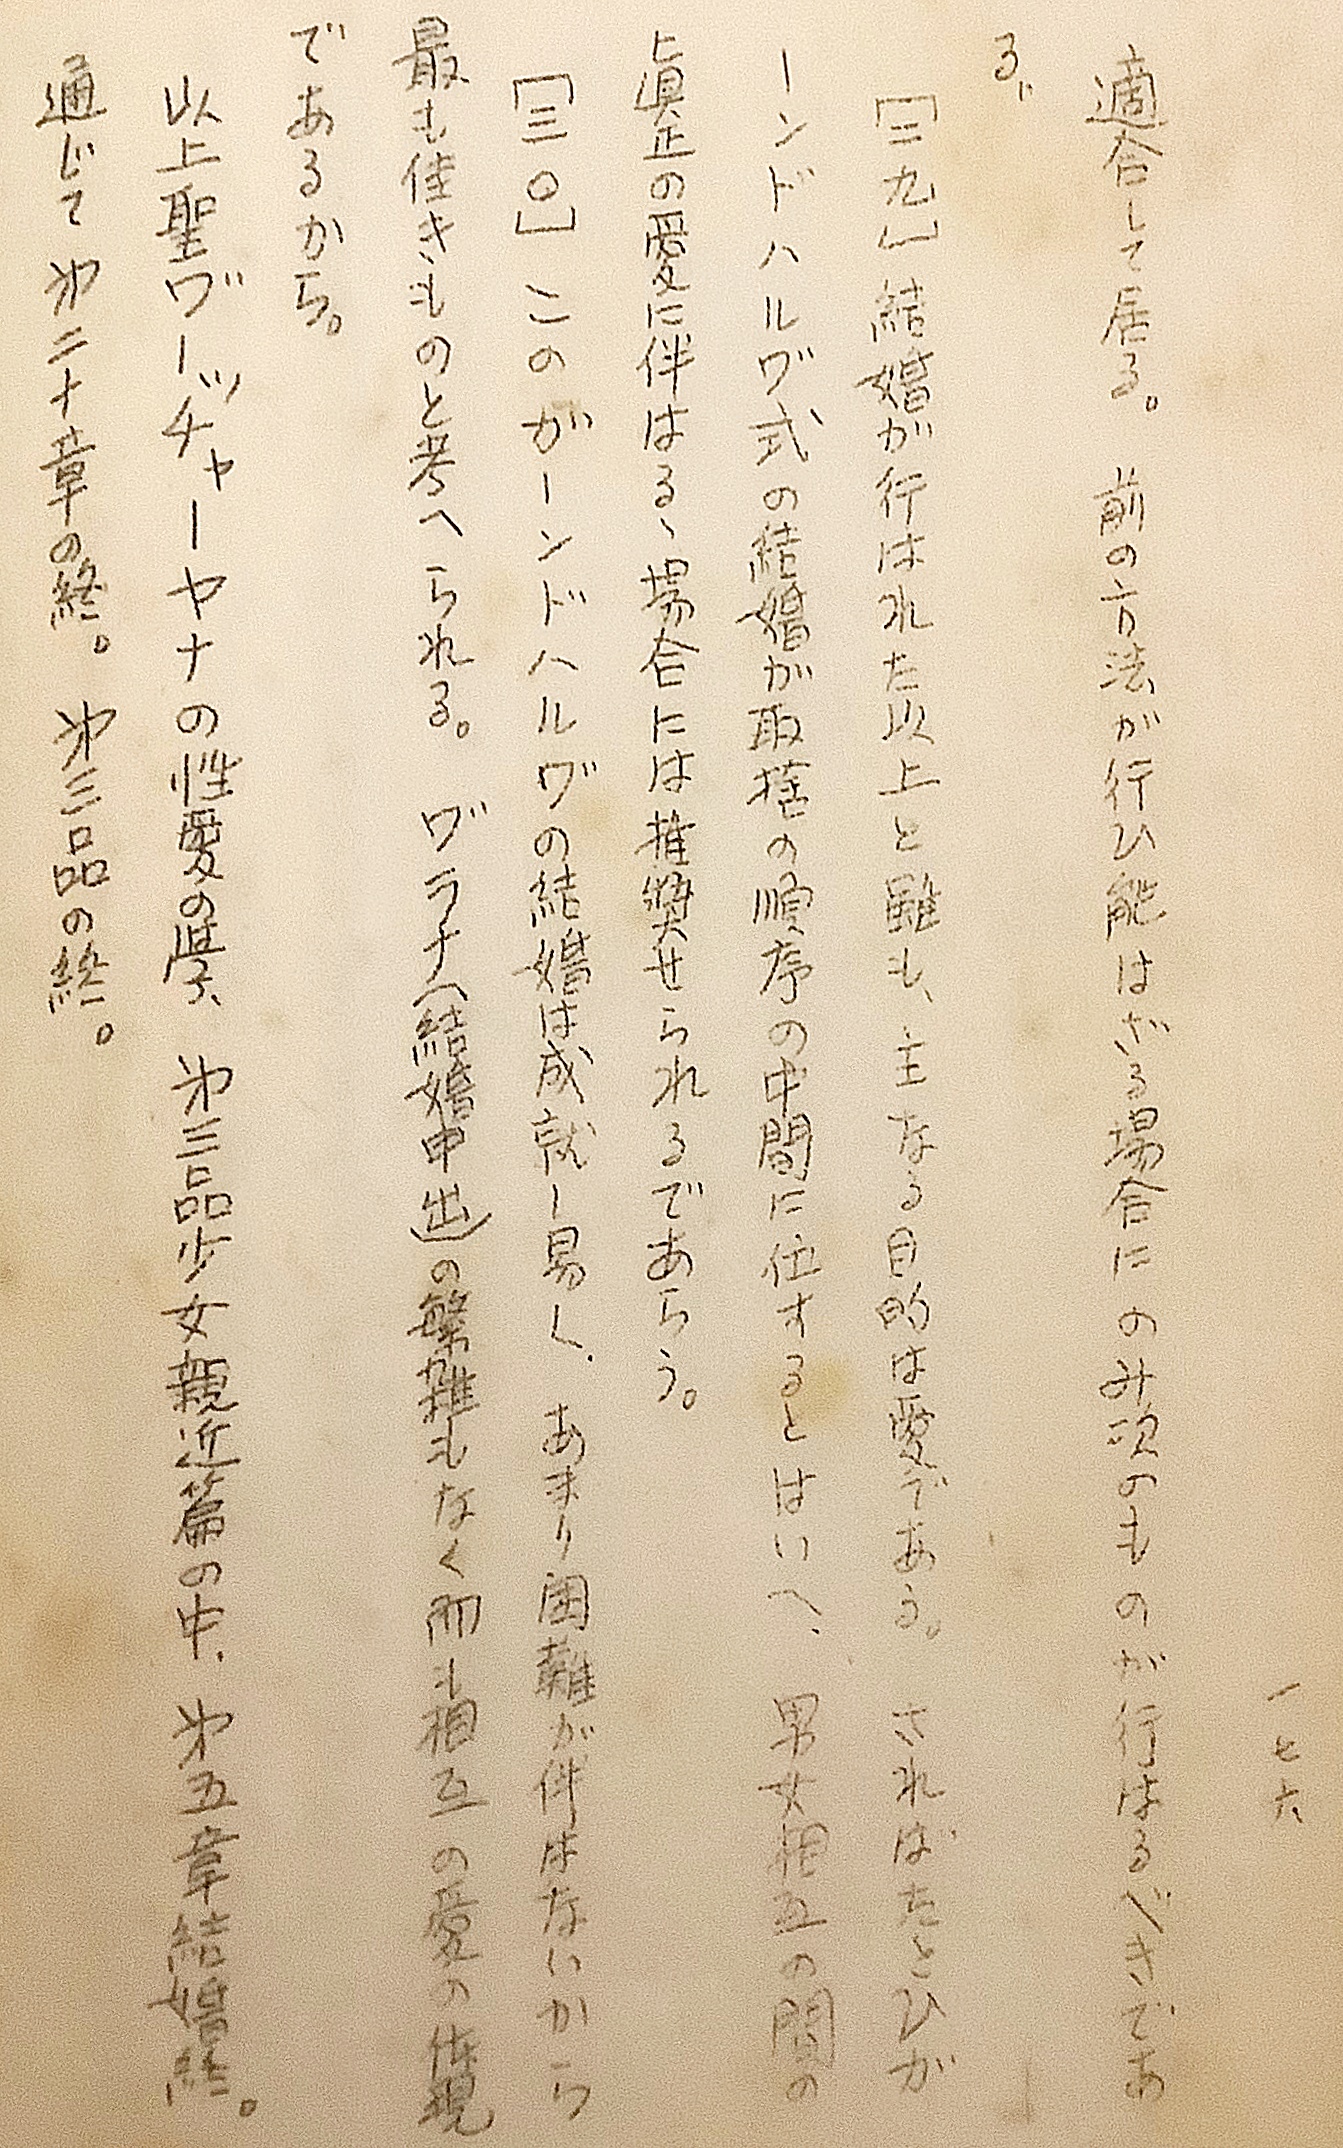 一七六
適合して居る。前の方法が行ひ能はざる場合にのみ次のものが行はるべきであ
る。
[二九]結婚が行はれた以上と雖も、主なる目的は愛である。さればたとひガ
ーンドハルヴ式の結婚が取捨の順序の中間に位するとはいへ、男女相互の間の
眞正の愛に伴はるゝ場合には推奬せられるであらう。
[三〇]このガーンドハルヴの結婚は成就し易く、あまり困難が伴はないから
最も佳きものと考へられる。ヴラナ(結婚申出)の繁雑もなく而も相互の愛の体現
であるから。
以上聖ヴーッチャーヤナの性愛の學、㐧三品少女親近篇の中、㐧五章結婚終。
通じて㐧二十章の終。㐧三品の終。